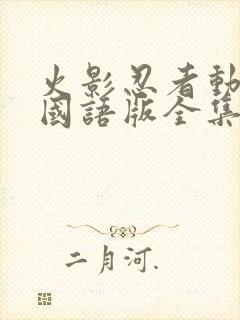 火影忍者動
國語版全集
二月河.